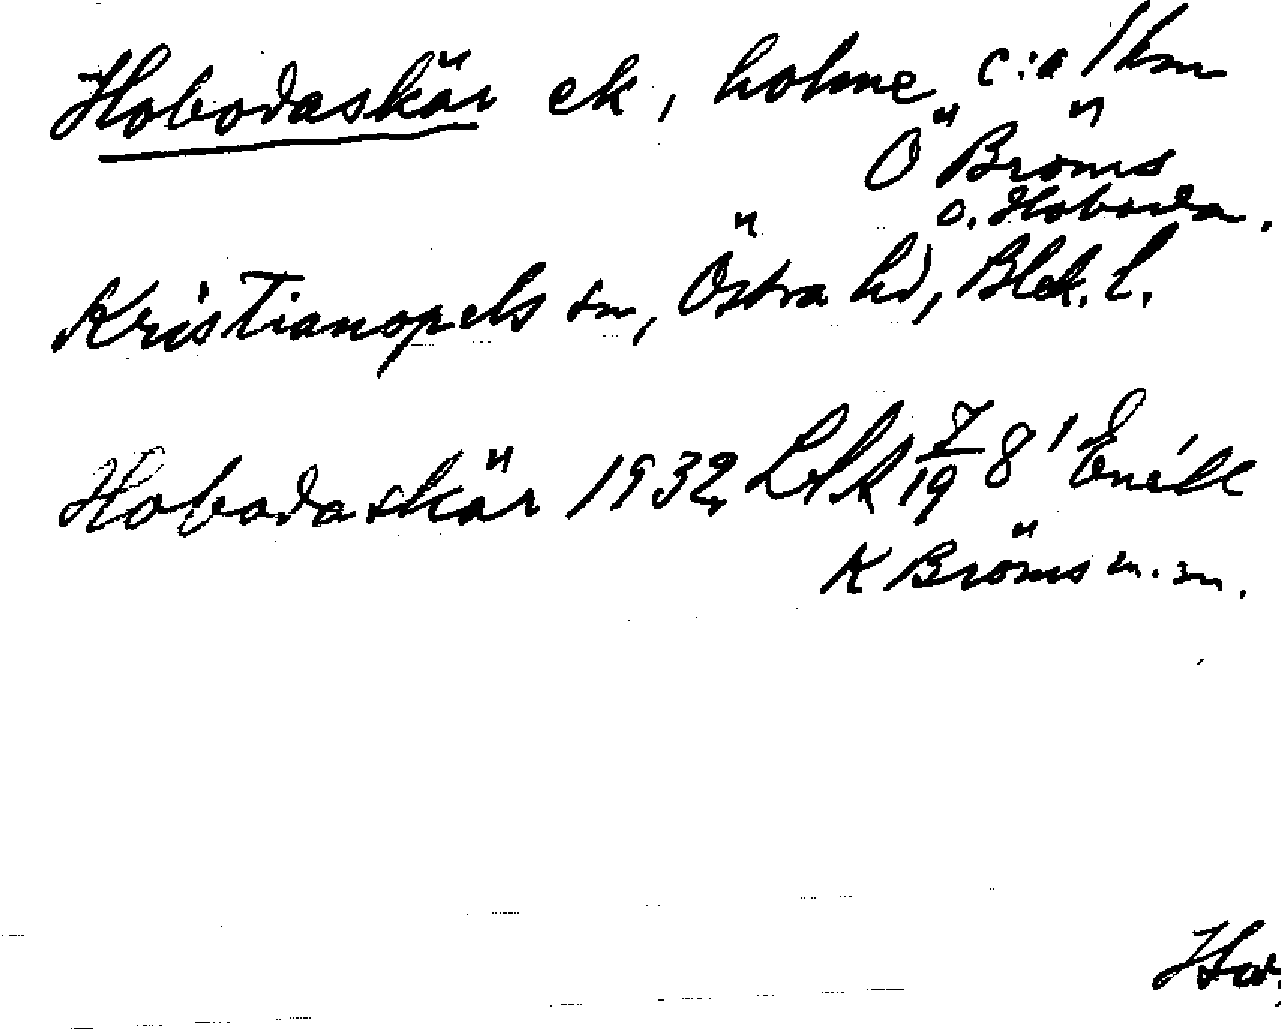 Hobodaskär ek, holme c:a 1 km
Ö Bröms
o. Hoboda.
Kristianopels sn, Östra hd, Blek. l.
Hobodaskär 1932 7/19 8' Enéll
K Bröms m.m.